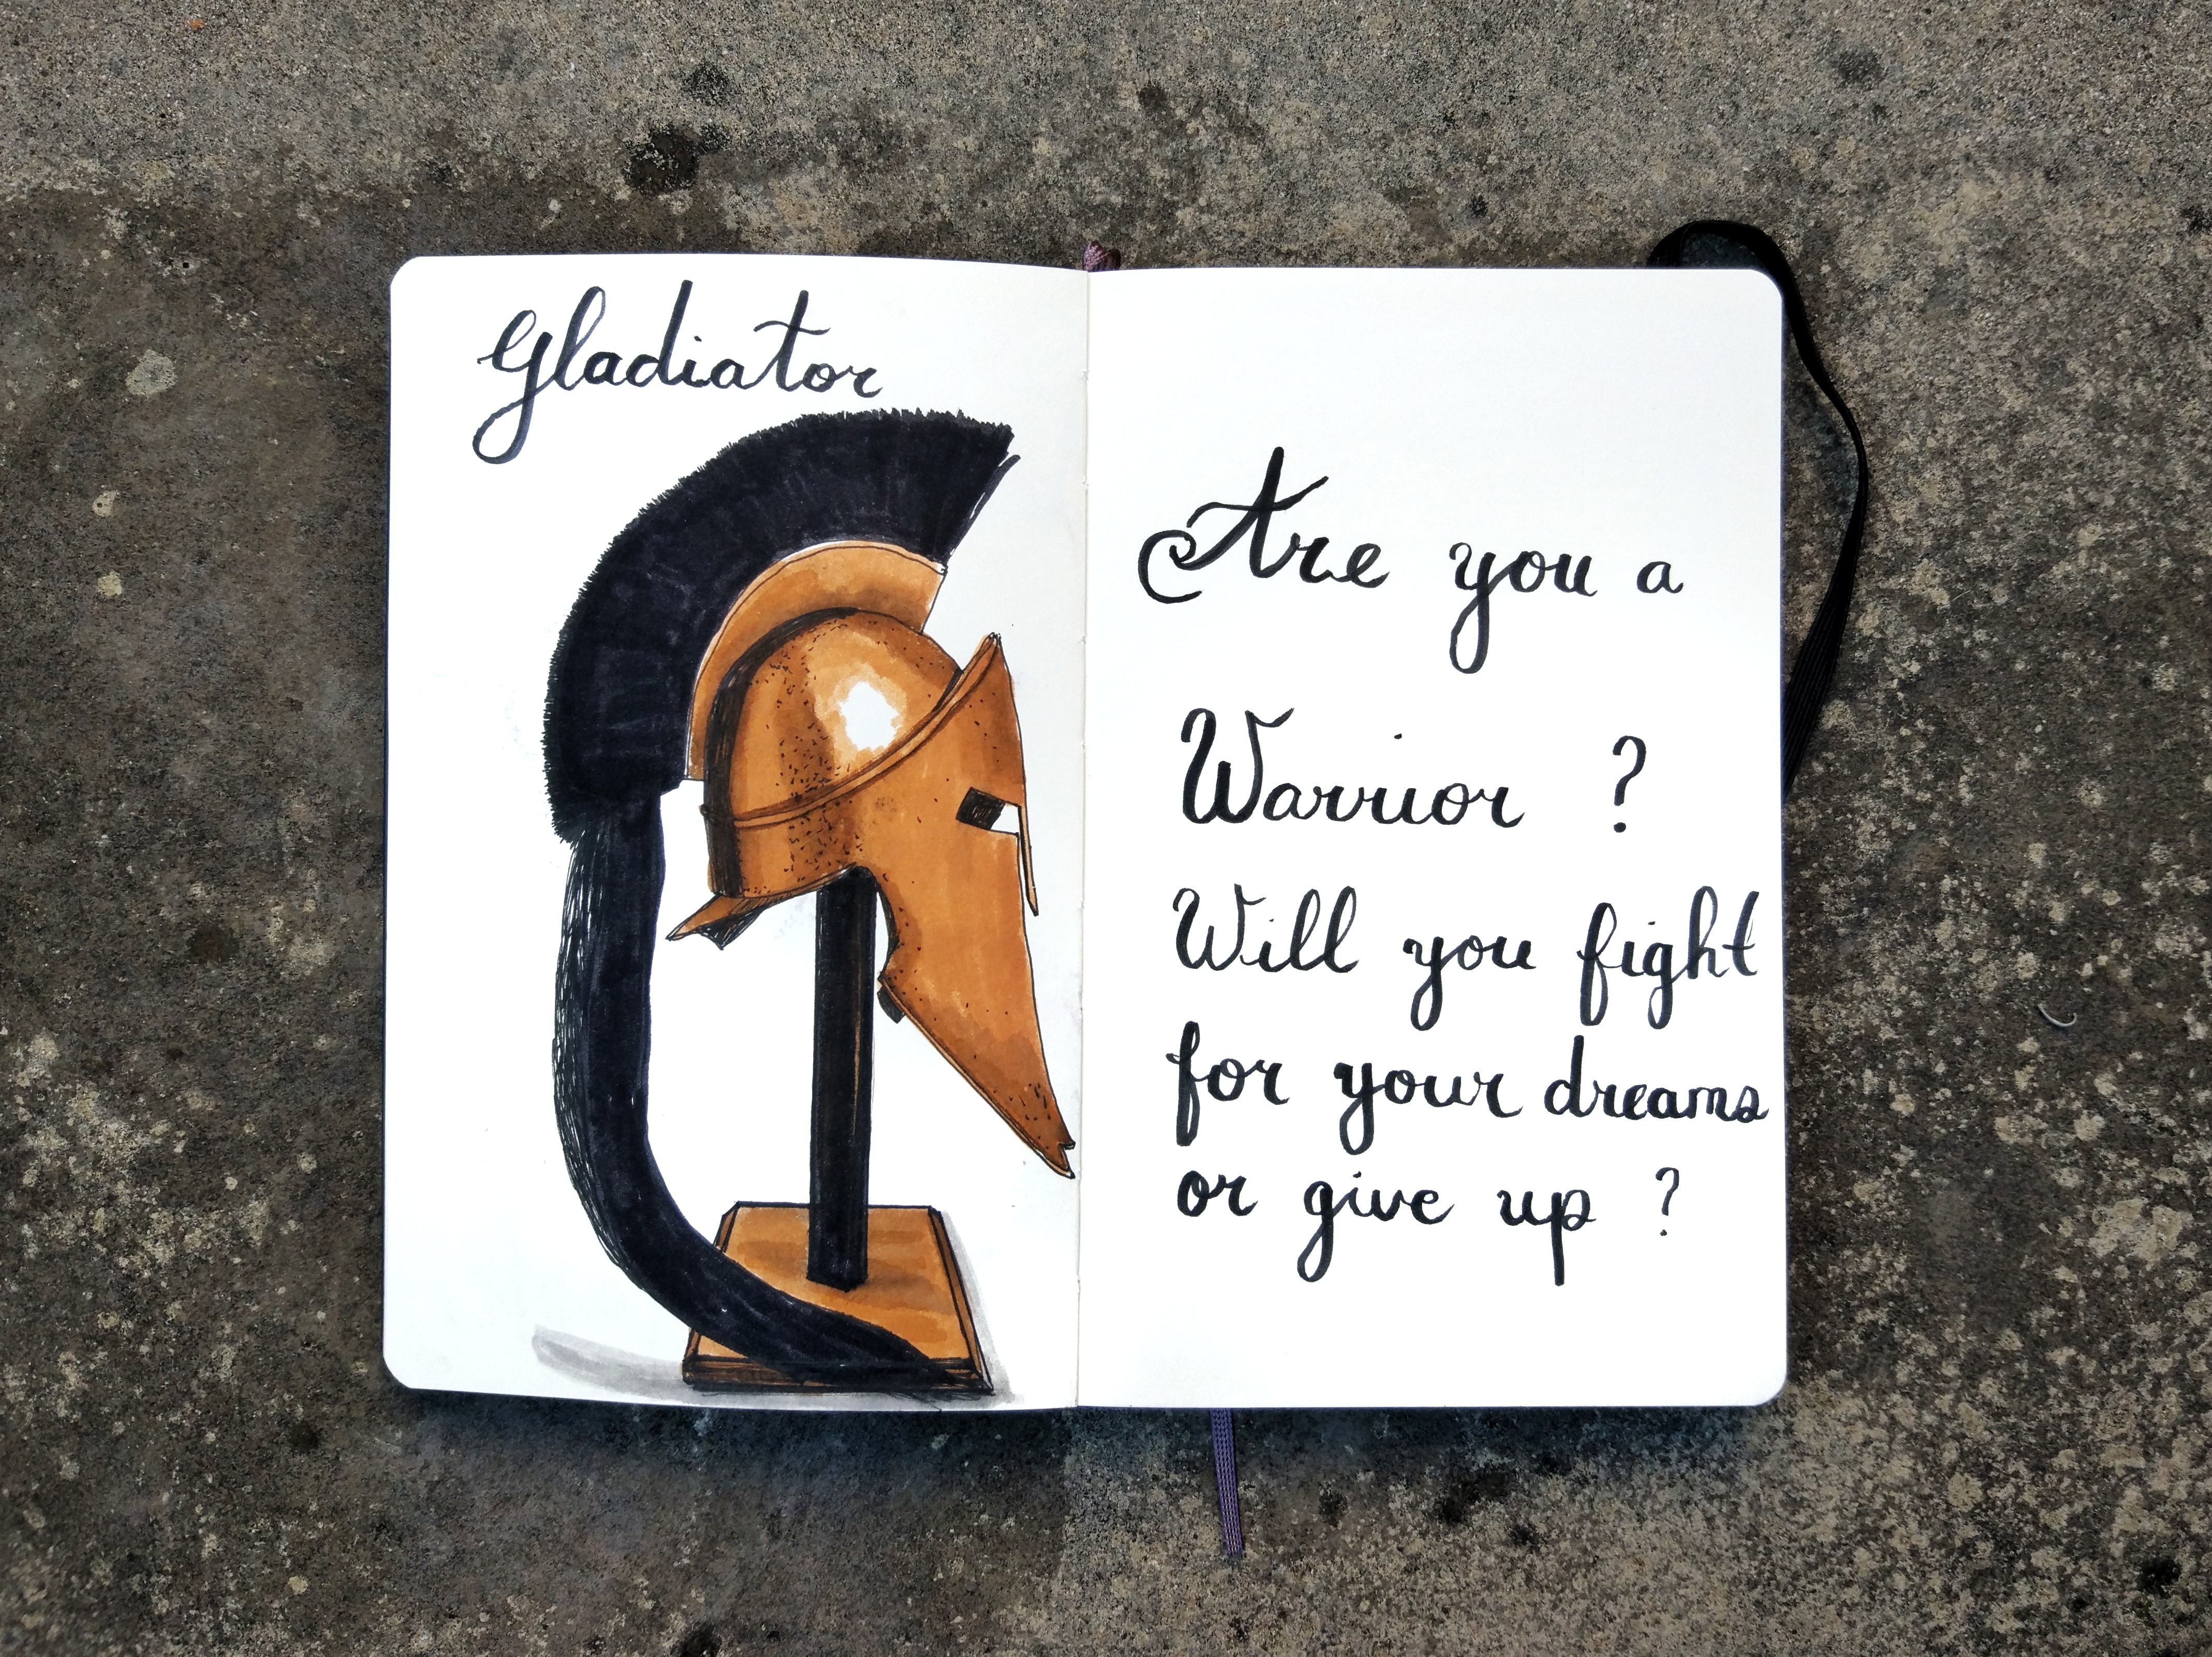 Gladiator
Are you a
Warrior ?
Will you fight
for your dreams
or give up ?